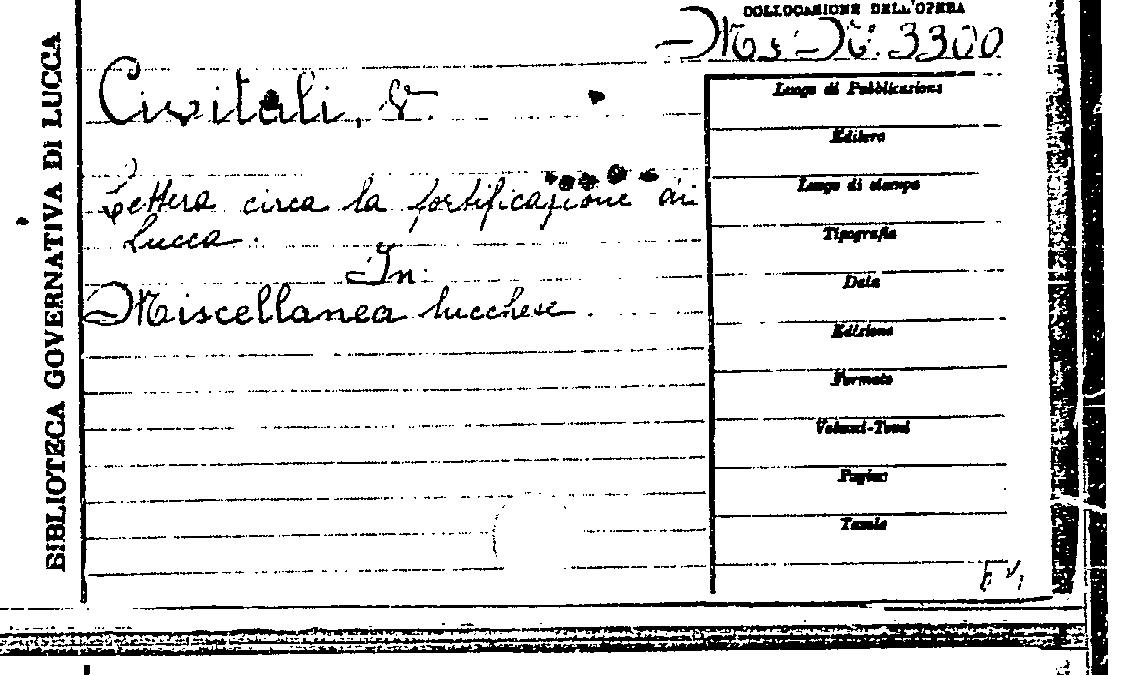 BIBLIOTECA GOVERNATIVA DI LUCCA
COLLOCAZIONE DELL'OPERA
Ms. N. 3300
Civitali,
Lettera circa la fortificazione di
Lucca.
In:
Miscellanea lucchese.
Luogo di Pubblicazione
Editore
Luogo di stampa
Tipografia
Data
Edizione
Formato
Volumi-Tomi
Pagine
Tavole